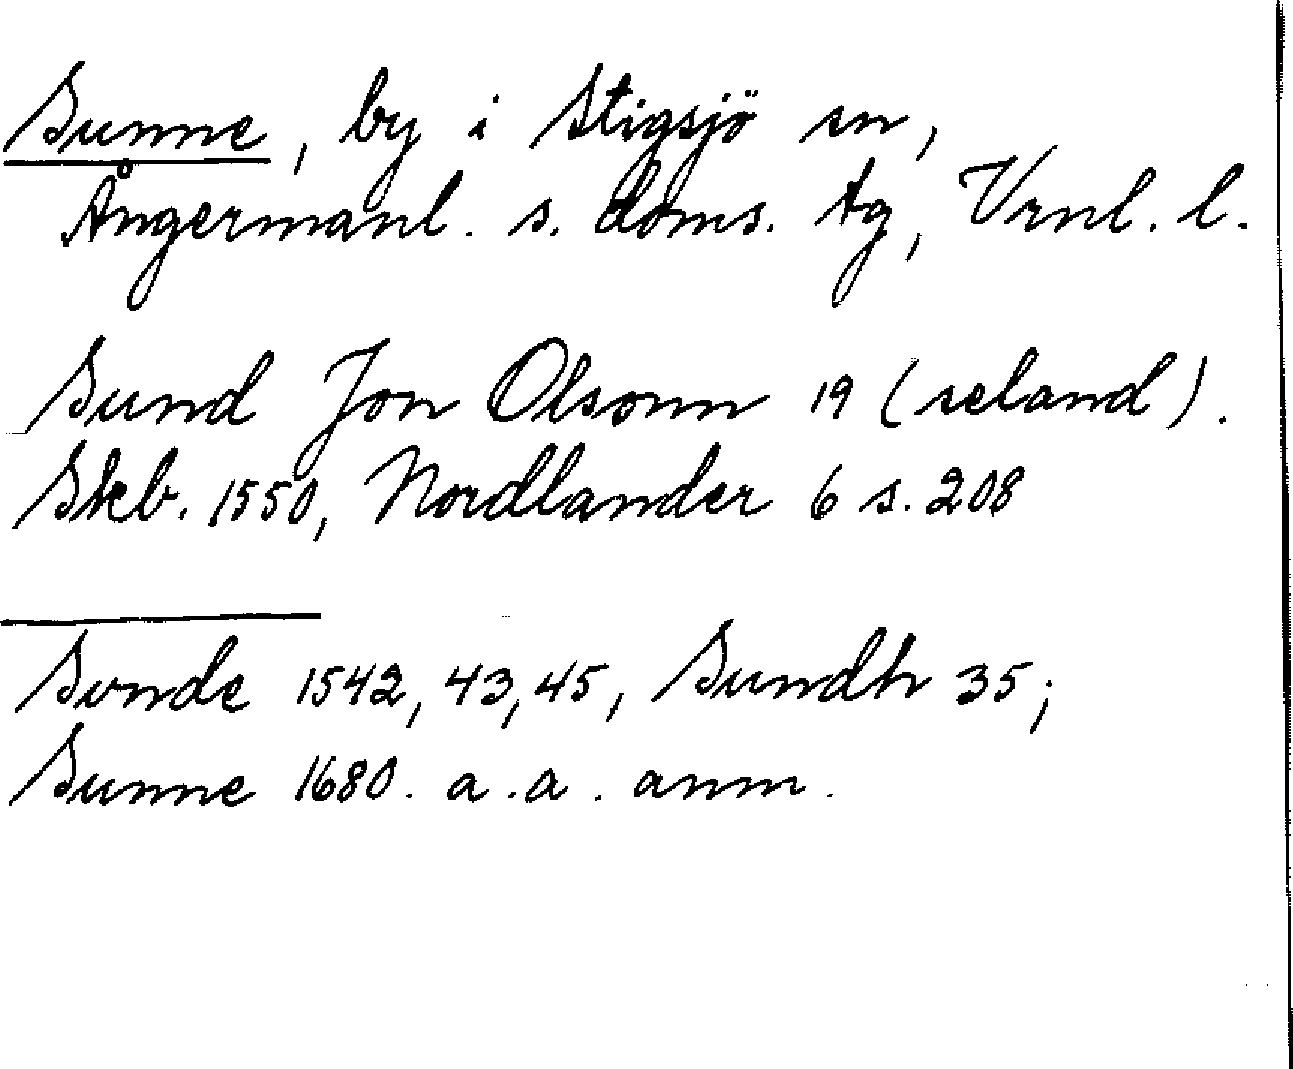 Sunne, by i Stigsjö sn,
Ångermanl. s. doms. tg, Vrnl. l.
Sund Jon Olsonn 19 (seland).
Skb. 1550, Nordlander 6 s. 208
Svnde 1542, 43, 45, Sundh 35;
Sunne 1680. a. a. anm.